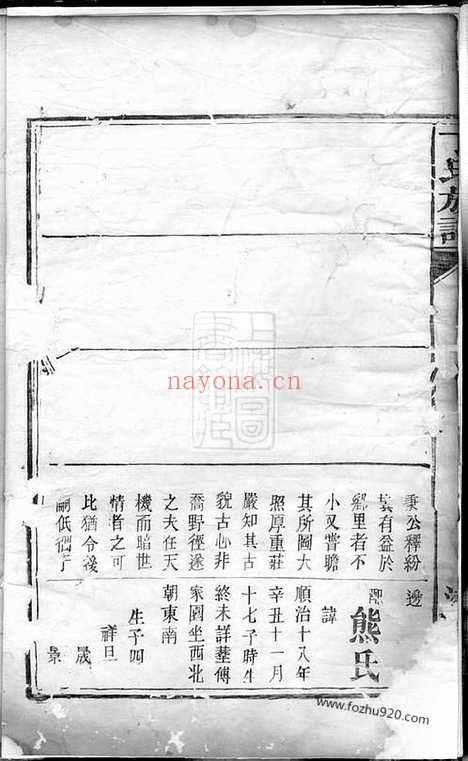 氏族譜
秉公釋紛
有益於
鄉里者不
小又嘗瞻
其所圖大
照厚重莊
嚴知其古
貌古心非
喬野徑遂
之夫任天
機而暗世
情者之可
比猶令後
嗣低徊于
邊
熊氏
諱
順治十八年
辛丑十一月
十七子時生
終未詳塟傅
家園坐西北
朝東南
生子四
祥旦
晟
景
上海圖書館藏
nayona.cn
www.fozhu920.com